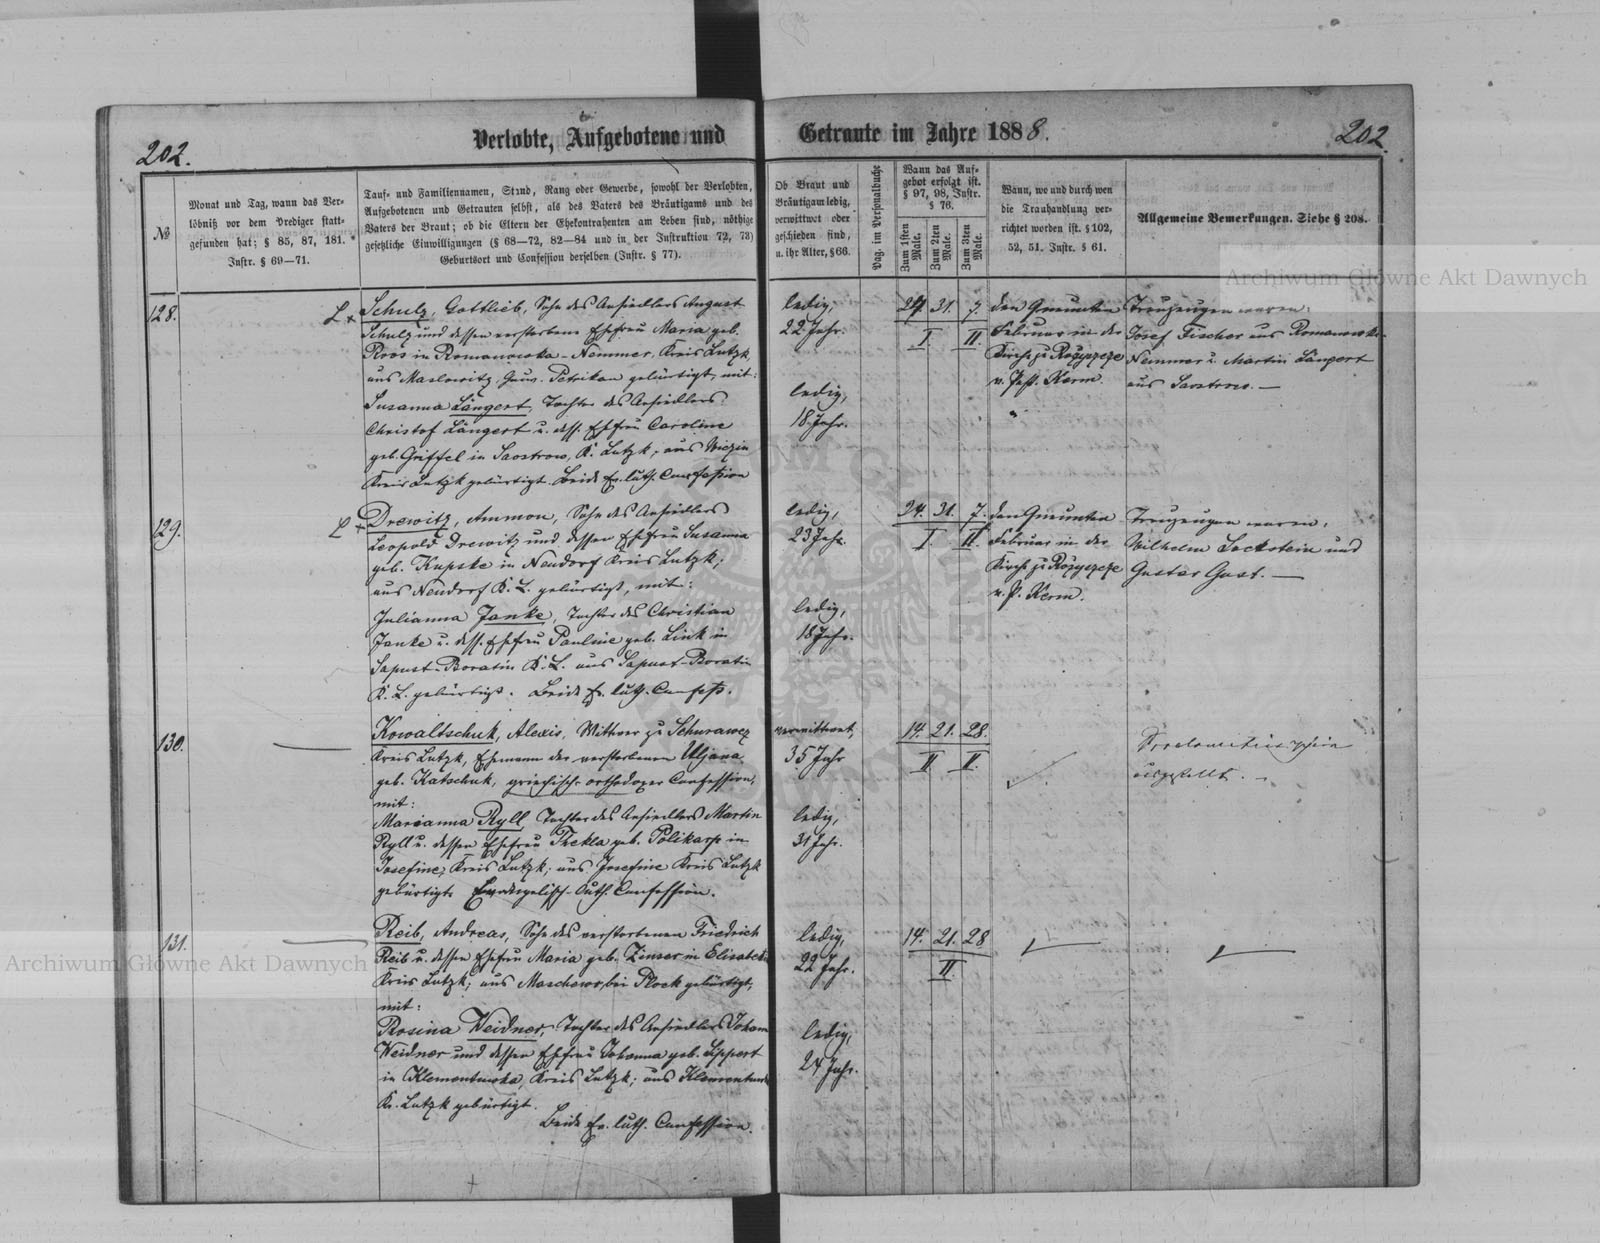 202.
Verlobte, Aufgebotene und
Getraute im Jahre 1888.
202.
№
Monat und Tag, wann das Ver-
löbniß vor dem Prediger statt-
gefunden hat; § 85, 87, 181.
Instr. § 69—71.
Tauf- und Familiennamen, Stand, Rang oder Gewerbe, sowohl der Verlobten,
Aufgebotenen und Getrauten selbst, als des Vaters des Bräutigams und des
Vaters der Braut; ob die Eltern der Ehekontrahenten am Leben sind, nöthige
gesetzliche Einwilligungen (§ 68—72, 82—84 und in der Instruktion 72, 73)
Geburtsort und Confession derselben (Instr. § 77).
Ob Braut und
Bräutigam ledig,
verwittwet oder
geschieden sind,
u. ihr Alter, § 66.
Pag. im Personalbuche
Wann das Auf-
gebot erfolgt ist.
§ 97, 98, Instr.
§ 76.
Zum 1sten Male.
Zum 2ten Male.
Zum 3ten Male.
Wann, wo und durch wen
die Trauhandlung ver-
richtet worden ist. § 102,
52, 51. Instr. § 61.
Allgemeine Bemerkungen. Siehe § 208.
Archiwum Główne Akt Dawnych
128.
L x
Schulz, Gottlieb, Sohn des Ansiedlers August
Schulz und dessen verstorbene Ehefrau Maria geb.
Roos in Romanowka-Nemmer, Kreis Lutzk
aus Maslowitz, Gouv. Petrikau gebürtigt, mit:
Susanna Längert, Tochter des Ansiedlers
Christof Längert u. dess. Ehefrau Caroline
geb. Griffel in Saostrow, K. Lutzk, aus
Kreis Lutzk gebürtigt. Beide Ev. luth. Confession
ledig,
22 Jahr.
ledig,
18 Jahr.
24. 31. 7.
I. II.
den Neunten
Februar in der
Kirche zu Rozyszcze
v. Past. Kerm.
Treuzeugen waren:
Josef Fischer aus Romanowka-
Nemmer u. Martin Längert
aus Saostrow. —
129.
L x
Drewitz, Ammon, Sohn des Ansiedlers
Leopold Drewitz und dessen Ehefrau Susanna
geb. Kupske in Neudorf Kreis Lutzk;
aus Neudorf K. L. gebürtigt, mit:
Julianna Janke, Tochter des Christian
Janke u. dess. Ehefrau Pauline geb. Link in
Sapust-Boratin K. L. aus Sapust-Boratin
K. L. gebürtigt. Beide Ev. luth. Confess.
ledig,
23 Jahr.
ledig,
18 Jahr.
24. 31. 7.
I. II.
den Neunten
Februar in der
Kirche zu Rozyszcze
v. P. Kerm.
Treuzeugen waren:
Wilhelm Sockstein und
Gustav Gast. —
130.
Kowaltschuk, Alexis, Wittwer zu Schurawez
Kreis Lutzk, Ehemann der verstorbenen Uljana,
geb. Katschuk, griechisch-orthodoxer Confession,
mit:
Marianna Ryll, Tochter des Ansiedlers Martin
Ryll u. dessen Ehefrau Thekla geb. Polikarp in
Josefine, Kreis Lutzk; aus Josefine Kreis Lutzk
gebürtigt. Evangelisch-Luth. Confession.
verwittwet,
35 Jahr
ledig,
31 Jahr.
14. 21. 28.
II. II.
ausgestellt. —
131.
Reib, Andreas, Sohn des verstorbenen Friedrich
Reib u. dessen Ehefrau Maria geb. Zinser in
Kreis Lutzk; aus Maschewo bei Plock gebürtigt,
mit:
Rosina Weidner, Tochter des Ansiedlers Johann
Weidner und dessen Ehefrau Johanna geb. Lippert
in Klementowka, Kreis Lutzk; aus
Kr. Lutzk gebürtigt.
Beide Ev. luth. Confession.
ledig,
22 Jahr.
ledig,
24 Jahr.
14. 21. 28
II.
Archiwum Główne Akt Dawnych